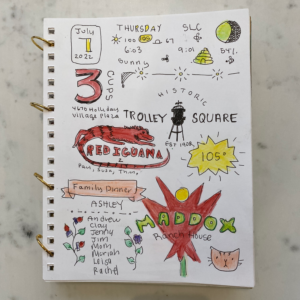 July
7
2022
THURSDAY SLC
100 67
6:03 9:01 54%
Sunny
3 CUPS
4670 Holladay
Village Plaza
HISTORIC
TROLLEY SQUARE
EST 1908
RED IGUANA
2
105°
Family Dinner
ASHLEY
Andrew
Clay
Jenny
Jim
Mom
Mariah
Leisa
Rachel
MADDOX
Ranch House